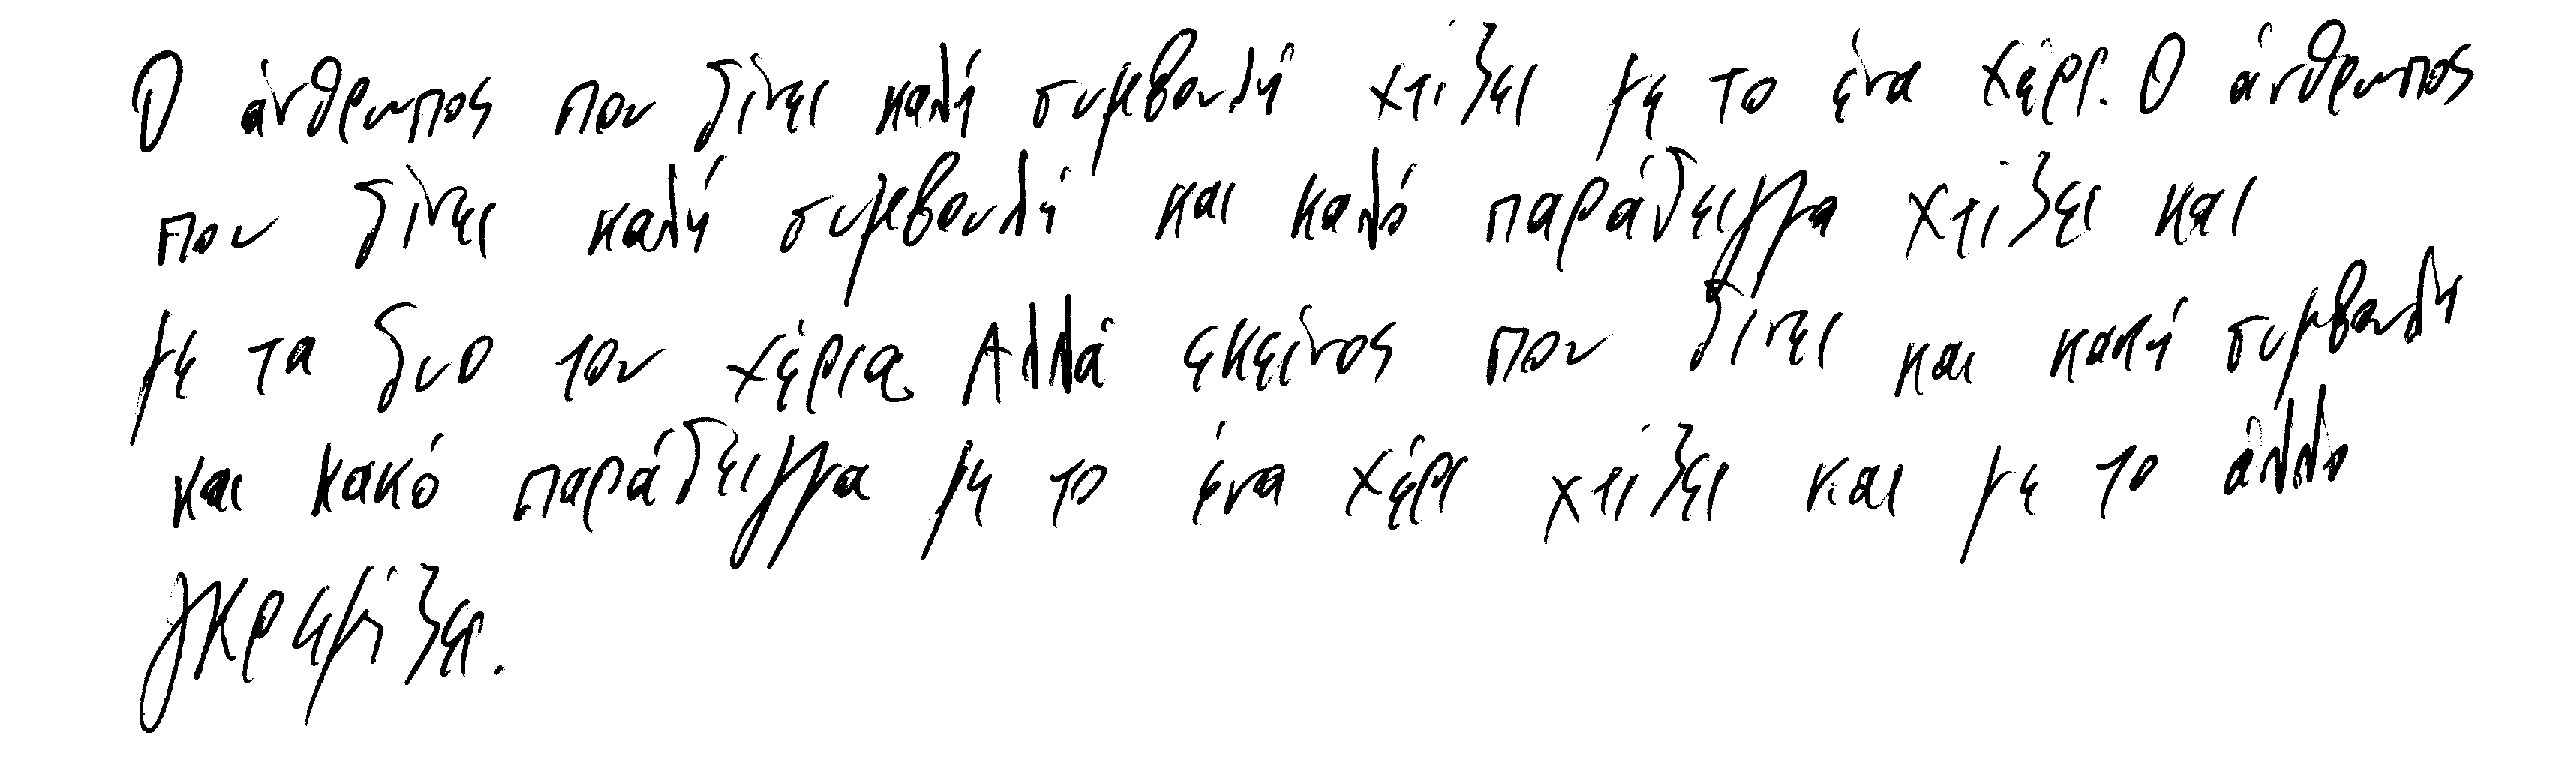 Ο άνθρωπος που δίνει καλή συμβουλή χτίζει με το ένα χέρι. Ο άνθρωπος
που δίνει καλή συμβουλή και καλό παράδειγμα χτίζει και
με τα δυο του χέρια Αλλά εκείνος που δίνει και καλή συμβουλή
και κακό παράδειγμα με το ένα χέρι χτίζει και με το άλλο
γκρεμίζει.